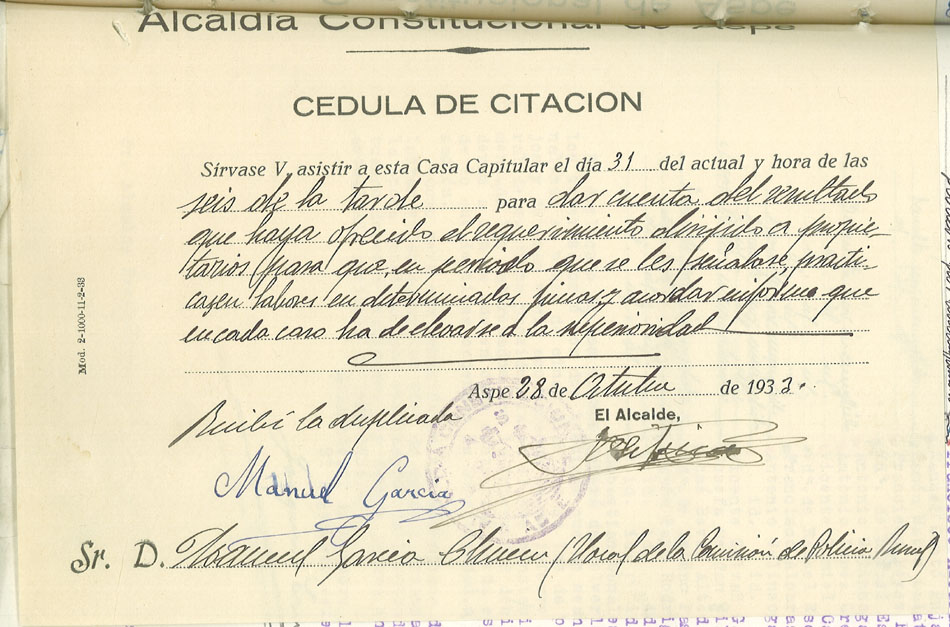 Alcaldía Constitucional de Aspe
CEDULA DE CITACION
Sírvase V. asistir a esta Casa Capitular el día 31 del actual y hora de las
seis de la tarde para dar cuenta del resultado
que haya ofrecido el requerimiento dirigido a propie
tarios para que, en periodo que se les señalase, practi-
casen labores en determinadas fincas y acordar informe que
en cada caso ha de elevarse a la superioridad
Aspe 28 de Octubre de 1933.
El Alcalde,
Recibí la duplicada
Manuel Garcia
Sr. D. Manuel Garcia (Vocal de la Comisión de Policia Rural)
Mod. 2-1000-11-2-33